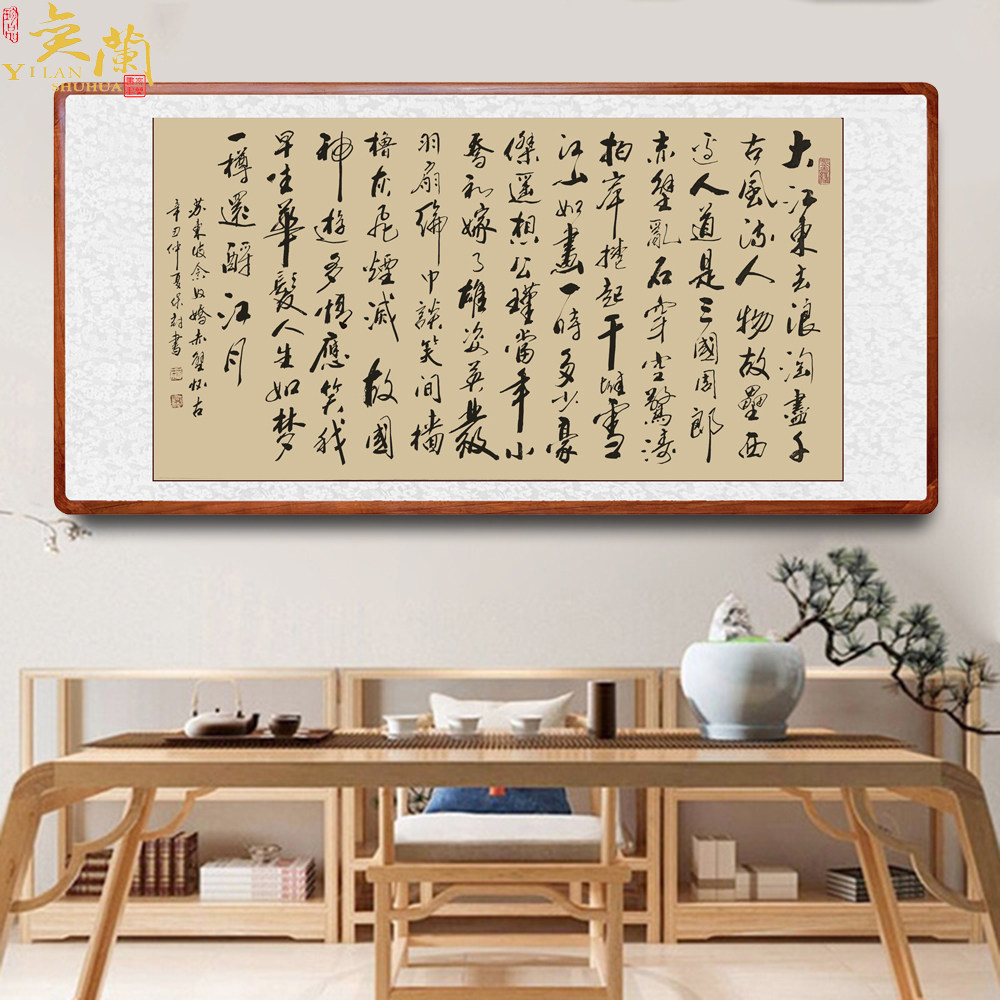 奕蘭
YILAN
SHUHUA
大江東去浪淘盡千
古風流人物故壘西
邊人道是三國周郎
赤壁亂石穿空驚濤
拍岸捲起千堆雪
江山如畫一時多少豪
傑遥想公瑾當年小
喬初嫁了雄姿英發
羽扇綸巾談笑間檣
櫓灰飛煙滅故國
神遊多情應笑我
早生華髮人生如梦
一樽還酹江月
苏東坡念奴嬌赤壁怀古
辛丑仲夏書